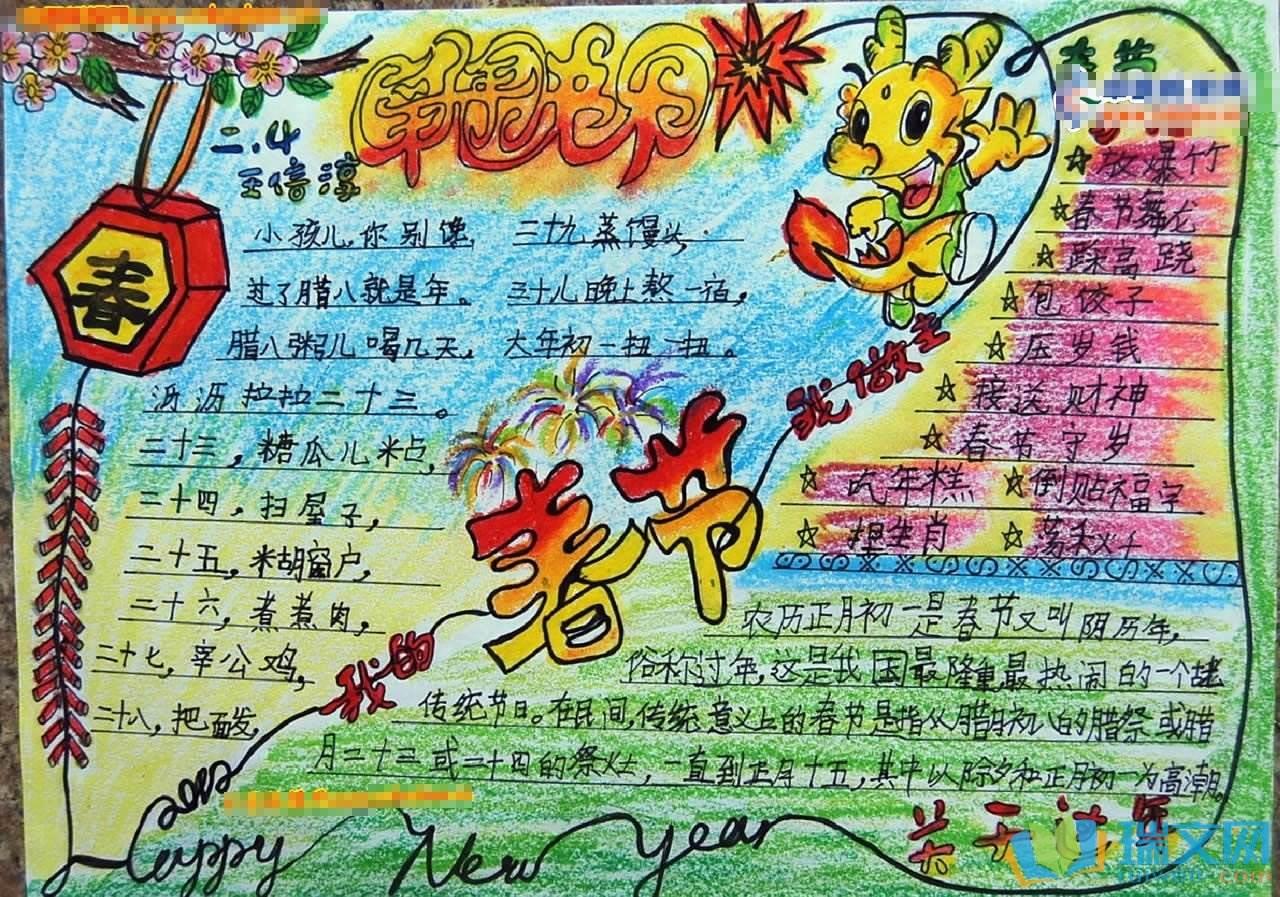 二.4
王倍淳
春
小孩儿,你别馋,
过了腊八就是年。
腊八粥儿喝几天,
沥沥拉拉二十三。
二十三,糖瓜儿粘,
二十四,扫屋子,
二十五,糊窗户,
二十六,煮煮肉,
二十七,宰公鸡,
二十八,把面发,
三十九蒸馒头.
三十儿晚上熬一宿,
大年初一扭一扭。
我的
春节
我做主
春节
☆放爆竹
☆春节舞龙
☆踩高跷
☆包饺子
☆压岁钱
☆接送财神
☆春节守岁
☆吃年糕 ☆倒贴福字
☆捏生肖 ☆荡秋千
农历正月初一是春节又叫阴历年,
俗称过年,这是我国最隆重,最热闹的一个
传统节日。在民间,传统意义上的春节是指从腊月初八的腊祭或腊
月二十三或二十四的祭灶,一直到正月十五,其中以除夕和正月初一为高潮。
2012
Happy New Year
关于过年
瑞文网
ruiwen.com